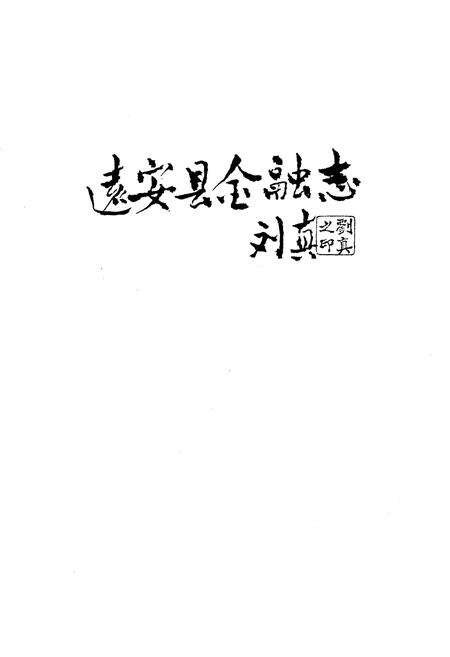 遠安县金融志
刘真
劉真之印